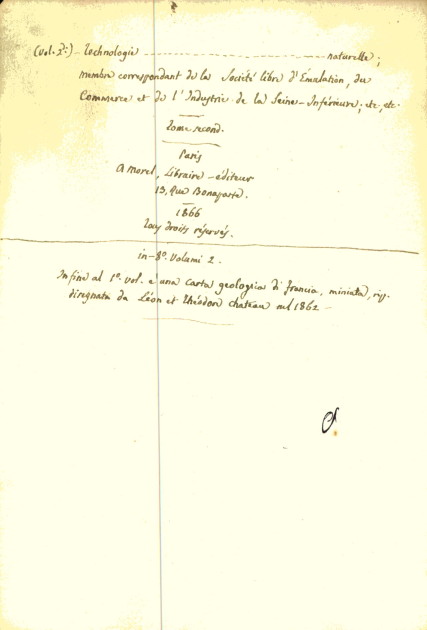 (Vol. 2º:) - Technologie ------------------------ naturelle;
membre correspondant de la Société libre d'Émulation, du
Commerce et de l'Industrie de la Seine-Inférieure; etc., etc.
Tome second.
Paris
A Morel, Libraire-éditeur
13, Rue Bonaparte.
1866
Tous droits réservés.
in-8º. Volumi 2.
In fine al 1º. vol. è una carta geologica di Francia, miniata,
disegnata da Léon et Théodore Chateau nel 1862 -